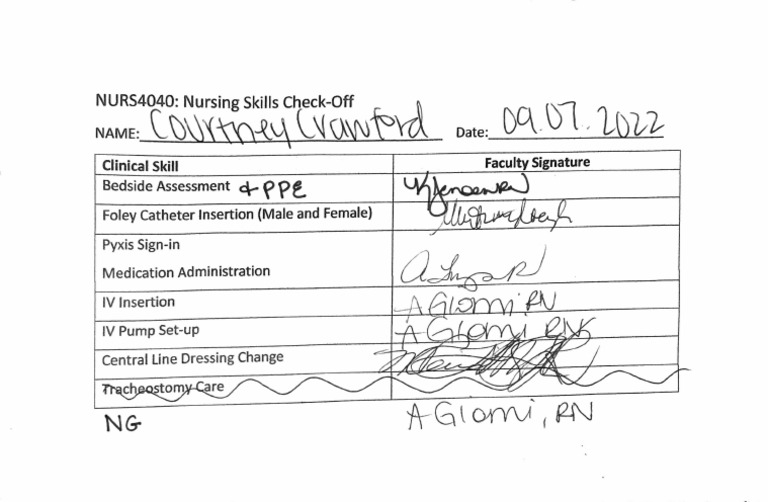 NURS4040: Nursing Skills Check-Off
NAME: Courtney Crawford Date: 09.07.2022
Clinical Skill Faculty Signature
Bedside Assessment & PPE KJensenRN
Foley Catheter Insertion (Male and Female)
Pyxis Sign-in
Medication Administration
IV Insertion A Giomi RN
IV Pump Set-up A Giomi RN
Central Line Dressing Change
Tracheostomy Care
NG A Giomi, RN